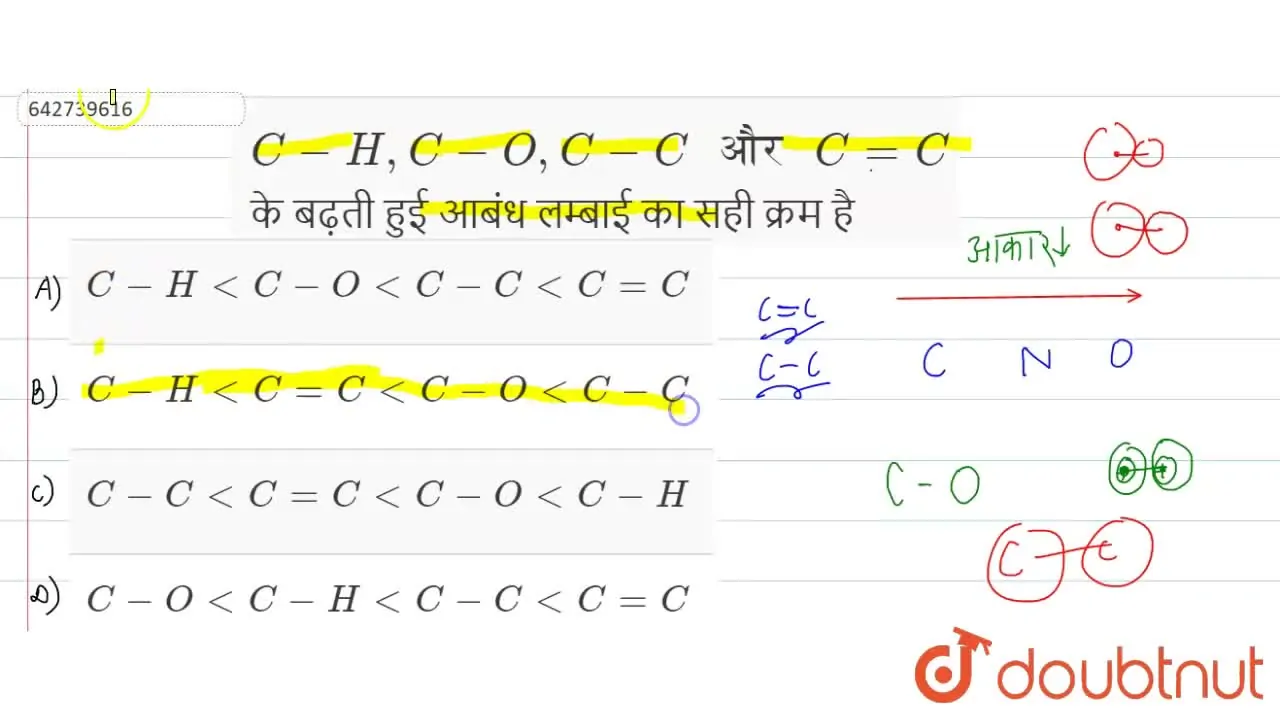 642739616
C − H, C − O, C − C और C = C
के बढ़ती हुई आबंध लम्बाई का सही क्रम है
A) C − H < C − O < C − C < C = C
B) C − H < C = C < C − O < C − C
C) C − C < C = C < C − O < C − H
D) C − O < C − H < C − C < C = C
आकार↓
C=C
C-C
C N O
C - O
C C
doubtnut